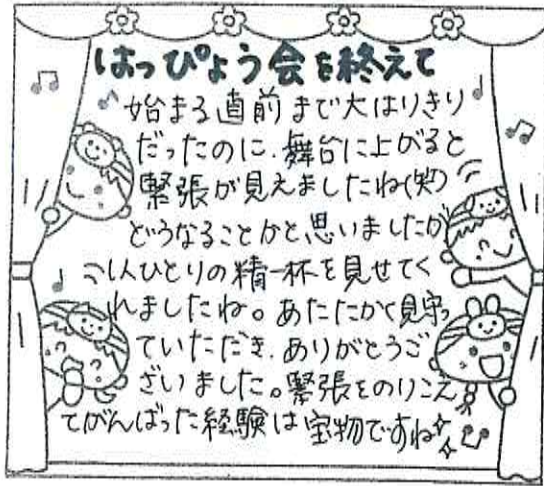 はっぴょう会を終えて
始まる直前まで大はりきり
だったのに、舞台に上がると
緊張が見えましたね(笑)
どうなることかと思いましたが
一人ひとりの精一杯を見せてく
れましたね。あたたかく見守っ
ていただき、ありがとうご
ざいました。緊張をのりこえ
てがんばった経験は宝物ですね